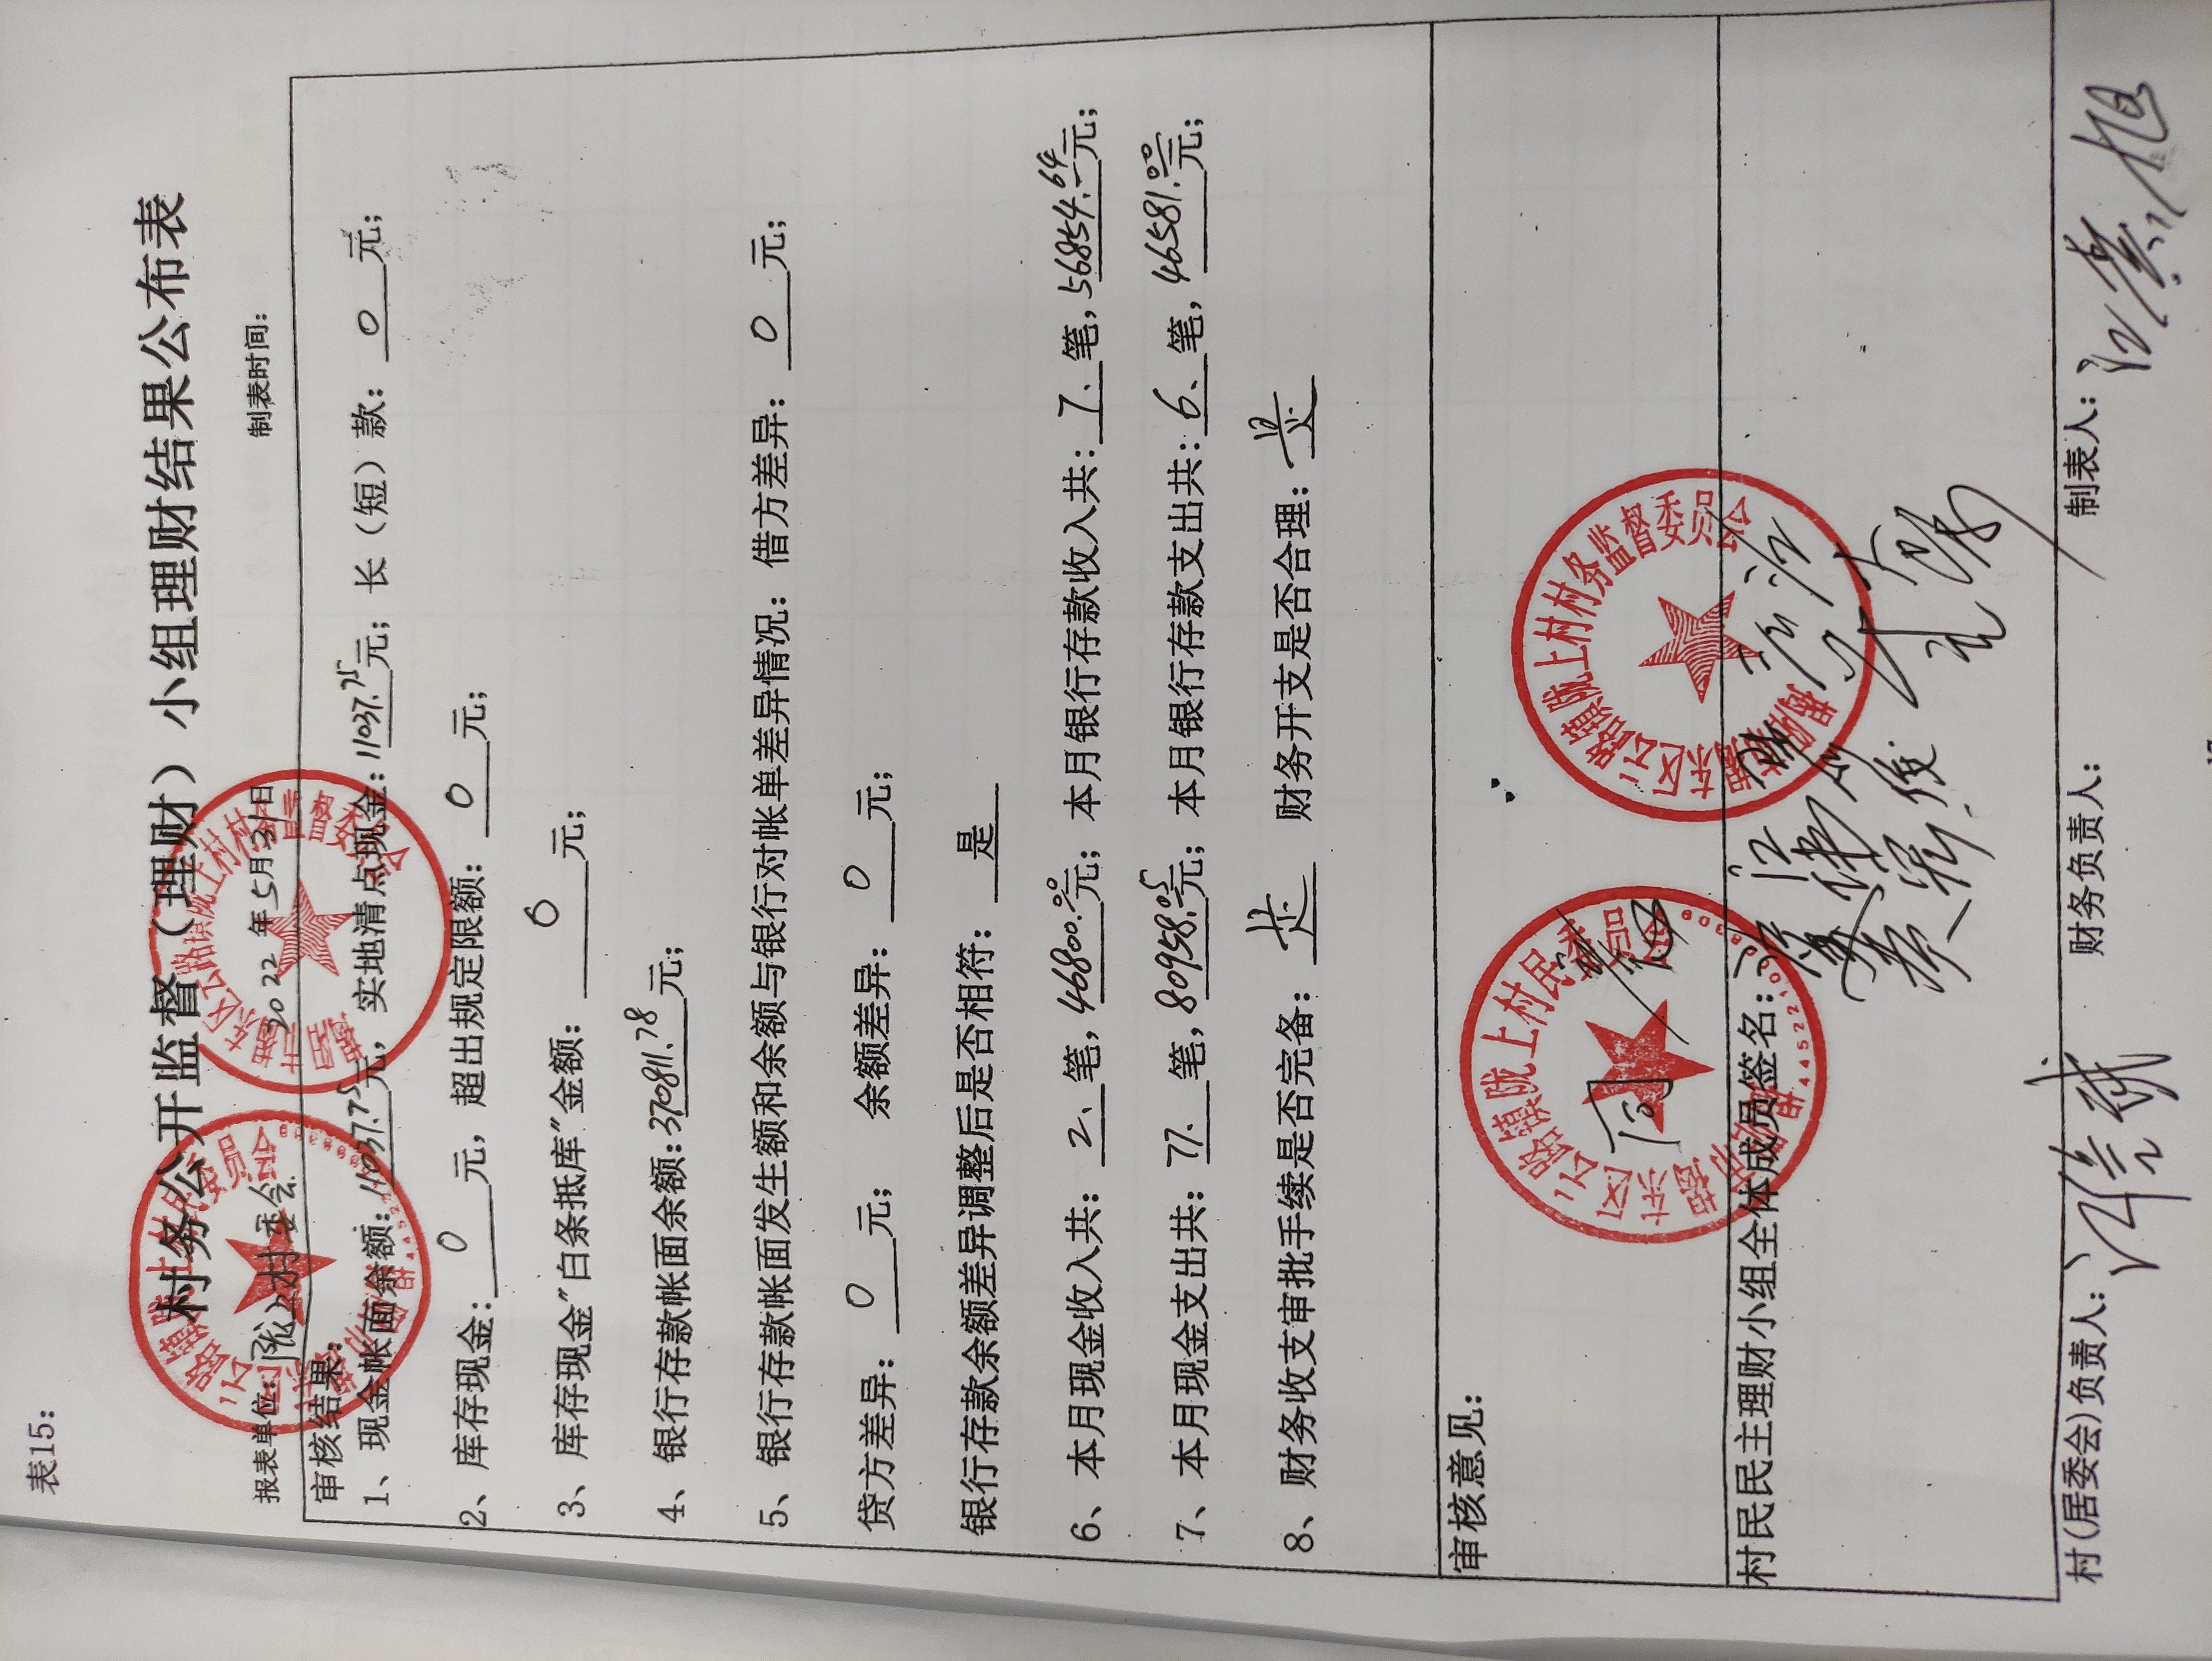 表15:
村务公开监督（理财）小组理财结果公布表
报表单位: 陇上村委会 2022年5月31日 制表时间:
审核结果:
1、现金帐面余额: 11037.75元, 实地清点现金: 11037.75元; 长（短）款: 0元;
2、库存现金: 0元, 超出规定限额: 0元;
3、库存现金"白条抵库"金额: 0元;
4、银行存款帐面余额: 370811.78元;
5、银行存款帐面发生额和余额与银行对帐单差异情况: 借方差异: 0元;
贷方差异: 0元; 余额差异: 0元;
银行存款余额差异调整后是否相符: 是
6、本月现金收入共: 2、笔, 46800.00元; 本月银行存款收入共: 7、笔, 56854.64元;
7、本月现金支出共: 77、笔, 80958.05元; 本月银行存款支出共: 6、笔, 46581.00元;
8、财务收支审批手续是否完备: 是 财务开支是否合理: 是
审核意见:
同
村民民主理财小组全体成员签名:
村(居委会)负责人: 财务负责人: 制表人: